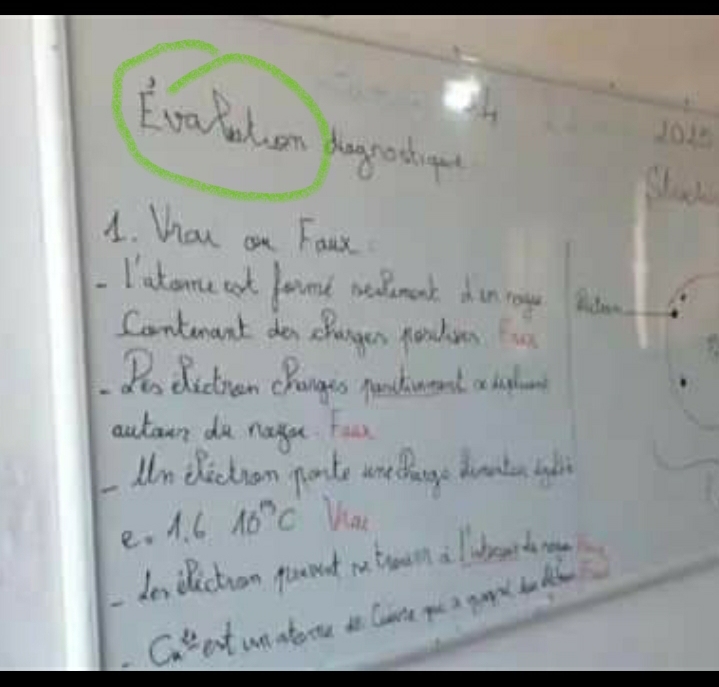 Évaluation diagnostique
2025
1. Vrai ou Faux :
- l'atome est formé seulement d'un noyau
Contenant des charges positives Faux
- Des électron chargés positivement se déplacent
autour du noyau. Faux
- Un électron porte une charge élémentaire
e = 1.6 10 C Vrai
- Les électron peuvent se trouver à l'intérieur du noyau Faux
- Cu est un atome de Cuivre qui a gagné des Faux